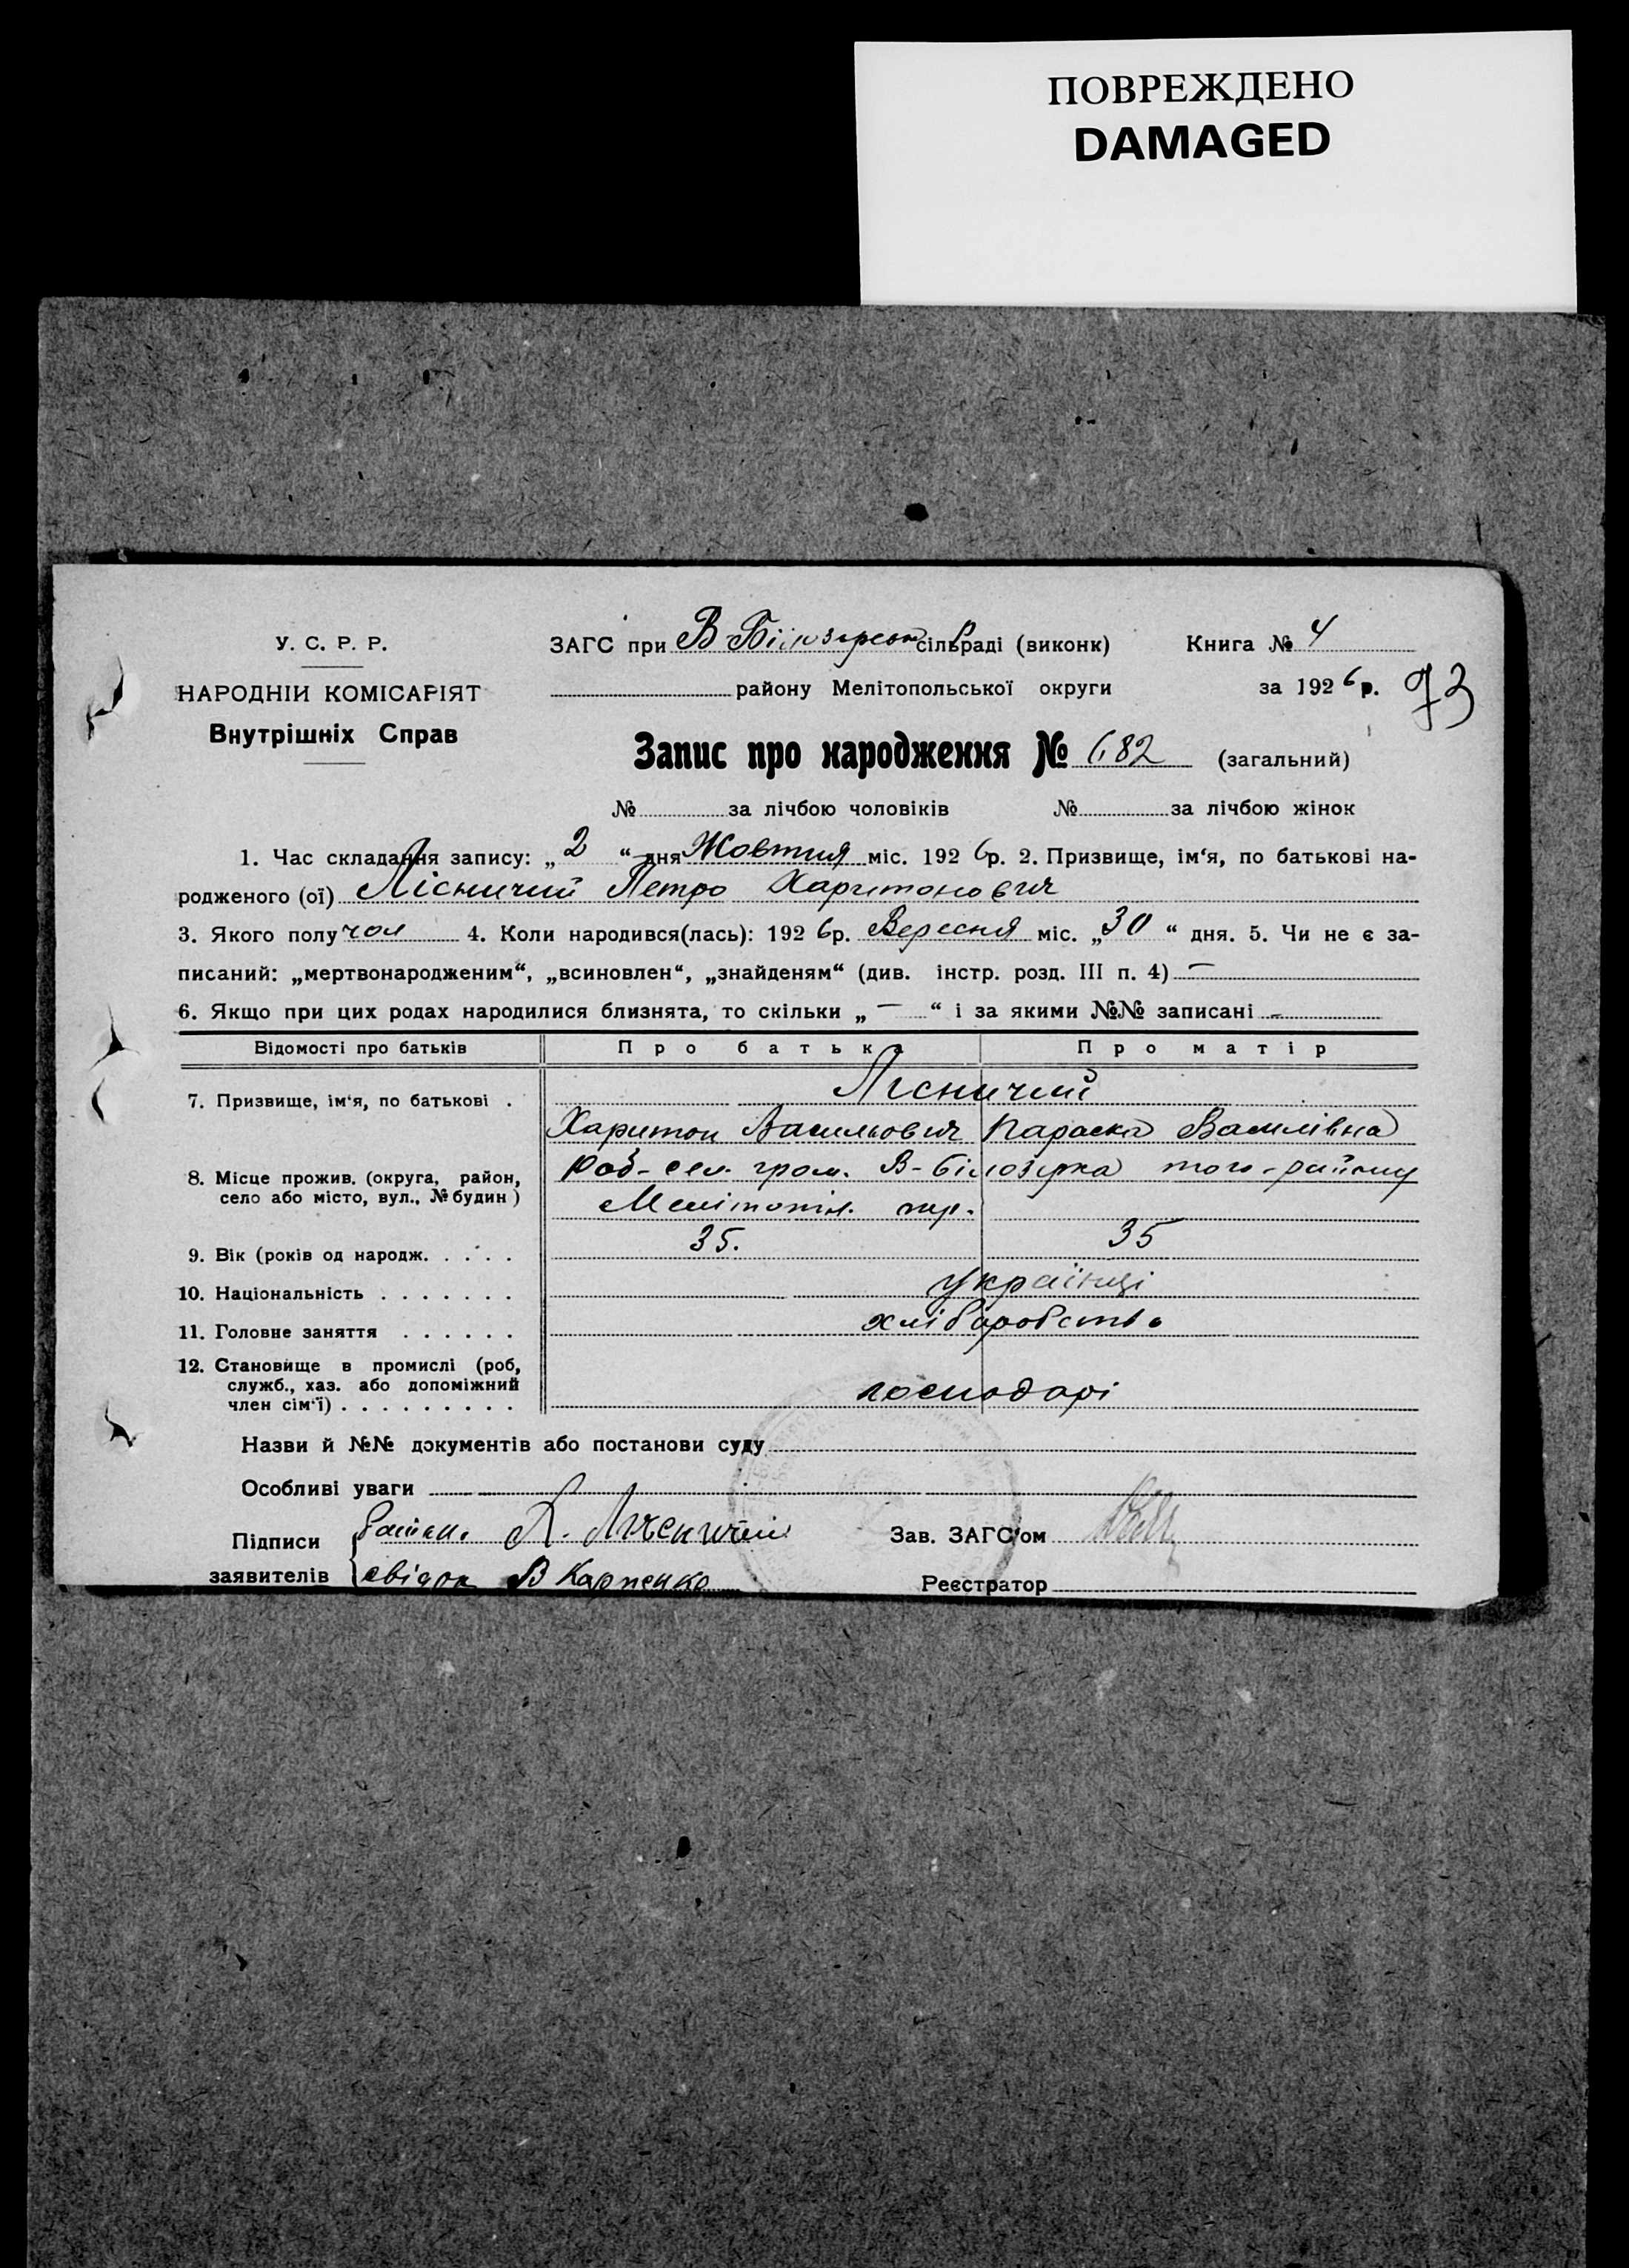 ПОВРЕЖДЕНО
DAMAGED
У. С. Р. Р.
НАРОДНІЙ КОМІСАРІЯТ
Внутрішніх Справ
ЗАГС при В сільраді (виконк) Книга № 4
району Мелітопольської округи за 1926 р. 93
Запис про народження № 682 (загальний)
№ за лічбою чоловіків № за лічбою жінок
1. Час складання запису: „2“ дня Жовтня міс. 1926 р. 2. Призвище, ім‘я, по батькові на-
родженого (ої) Лісничий Петро Харитонович
3. Якого полу чол 4. Коли народився(лась): 1926 р. Вересня міс. „30“ дня. 5. Чи не є за-
писаний: „мертвонародженим“, „всиновлен“, „знайденям“ (див. інстр. розд. III п. 4) —
6. Якщо при цих родах народилися близнята, то скільки „ — “ і за якими №№ записані -
Відомості про батьків Про батька Про матір
7. Призвище, ім‘я, по батькові . Лісничий
Харитон Васильович Параска Василівна
8. Місце прожив. (округа, район, село або місто, вул., № будин) сел. гром. В-Білозірка того-району
Мелітопіл. окр.
9. Вік (років од народж. . . . . 35. 35
10. Національність . . . . . . . українці
11. Головне заняття . . . . . . хліборобство
12. Становище в промислі (роб,
служб., хаз. або допоміжний
член сім‘ї) . . . . . . . . . господарі
Назви й №№ документів або постанови суду
Особливі уваги
Підписи Зав. ЗАГС‘ом
заявителів свідок В Карпенко Реєстратор